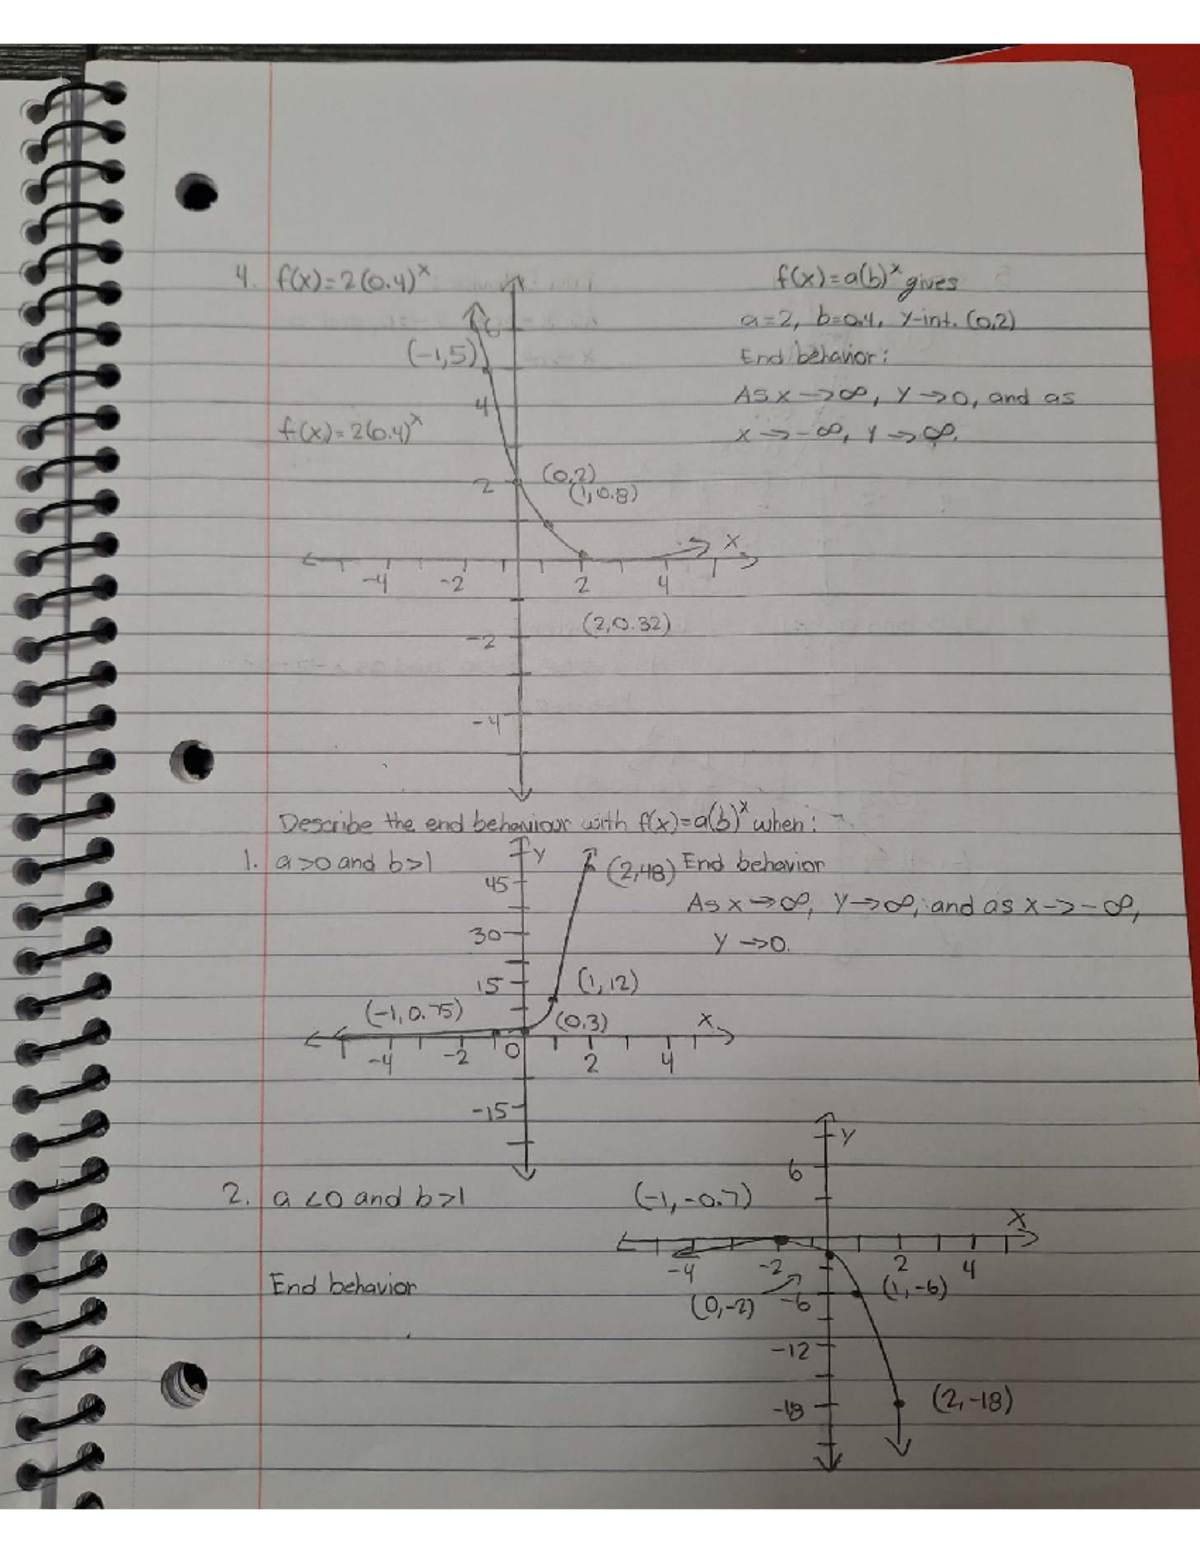 4. f(x)=2(0.4)ˣ
f(x)=a(b)ˣ gives
a=2, b=0.4, y-int. (0,2)
6
(-1,5)
End behavior:
4
As x→∞, y→0, and as
f(x)=2(0.4)ˣ
x→-∞, y→∞.
2 (0,2)
(1,0.8)
x
-4 -2 2 4
-2 (2,0.32)
-4
Describe the end behaviour with f(x)=a(b)ˣ when:
1. a>0 and b>1
y
(2,48) End behavior
45
As x→∞, y→∞, and as x→-∞,
30
y→0.
15 (1,12)
(-1,0.75) (0,3) x
-4 -2 0 2 4
-15
y
6
2. a<0 and b>1 (-1,-0.7)
x
-4 -2 2 4
End behavior (0,-2) -6 (1,-6)
-12
-18 (2,-18)